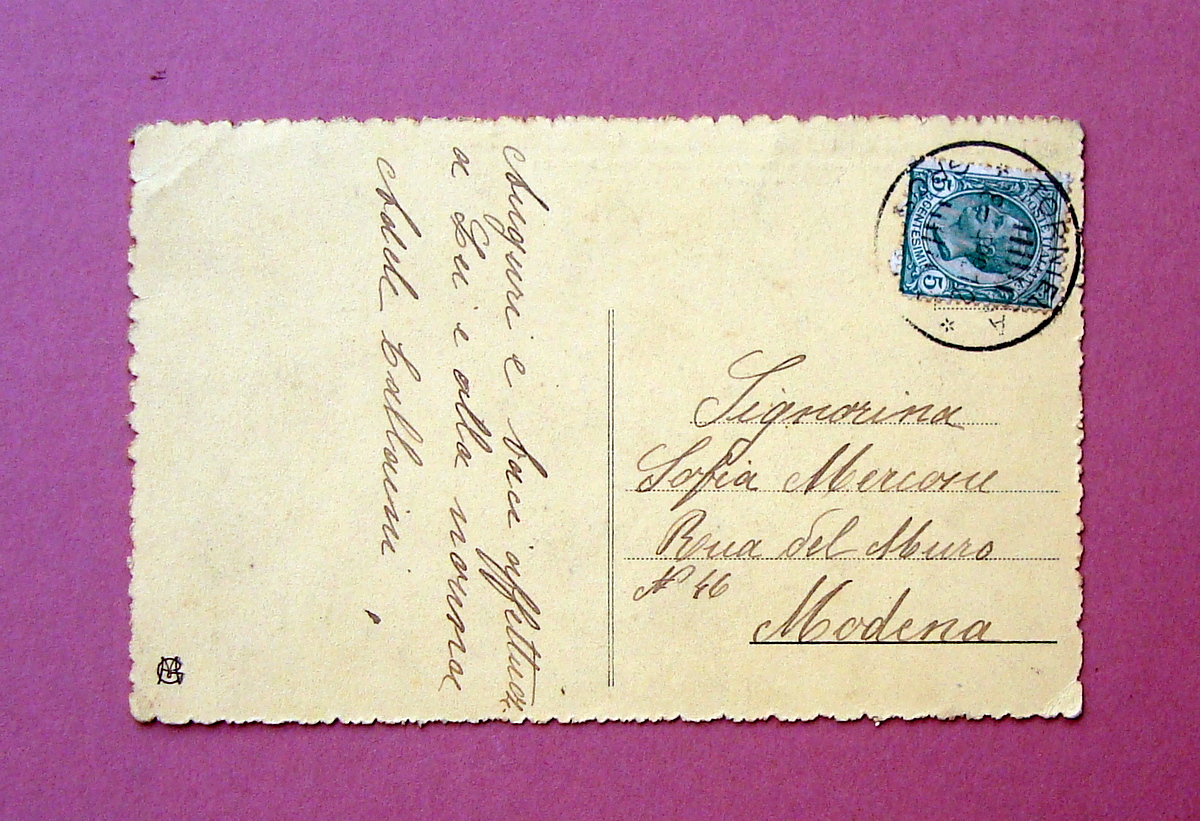 Auguri e baci affettuosi
a Lei e alla mamma
Adele
Signorina
Sofia Mercone
Rua del Muro
N° 46
Modena
POSTE ITALIANE
CENTESIMI
5
5